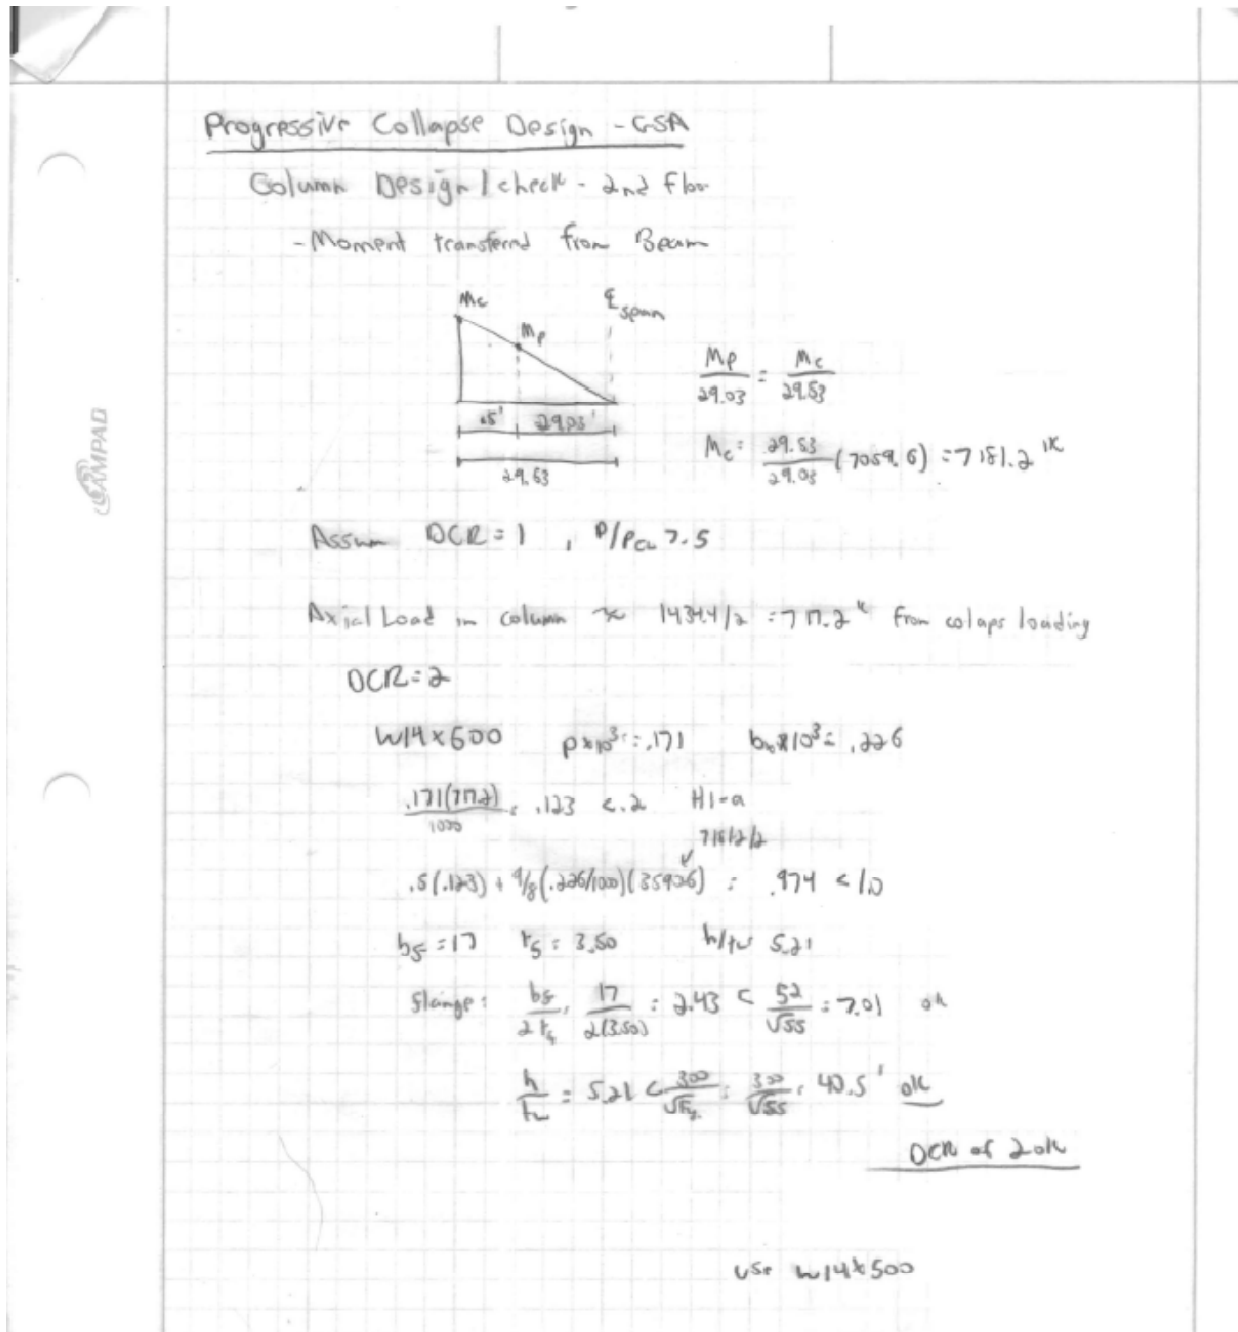 Progressive Collapse Design - GSA
Column Design / check - 2nd Floor
- Moment transferred from Beam
Mc
Mp
℄ span
Mp/29.03 = Mc/29.53
.5' 29.03'
29.53
Mc = 29.53/29.03 (7059.6) = 7181.2 'K
CAMPAD
Assum DCR = 1 , P/PCL >.5
Axial Load in column ≈ 1434.4/2 = 717.2 k from colaps loading
DCR = 2
W14x500 px10³ = .171 bxx10³ = .226
.171(717.2)/1000 = .123 < .2 H1-a
7181.2/2
.5(.123) + 9/8(.226/1000)(3590.6) = .974 < 1.0
bf = 17 tf = 3.50 h/tw 5.21
flange: bf/2tf = 17/2(3.50) = 2.43 < 52/√55 = 7.01 ok
h/tw = 5.21 < 300/√Fy = 300/√55 = 40.5 ok
DCR of 2 ok
use W14x500